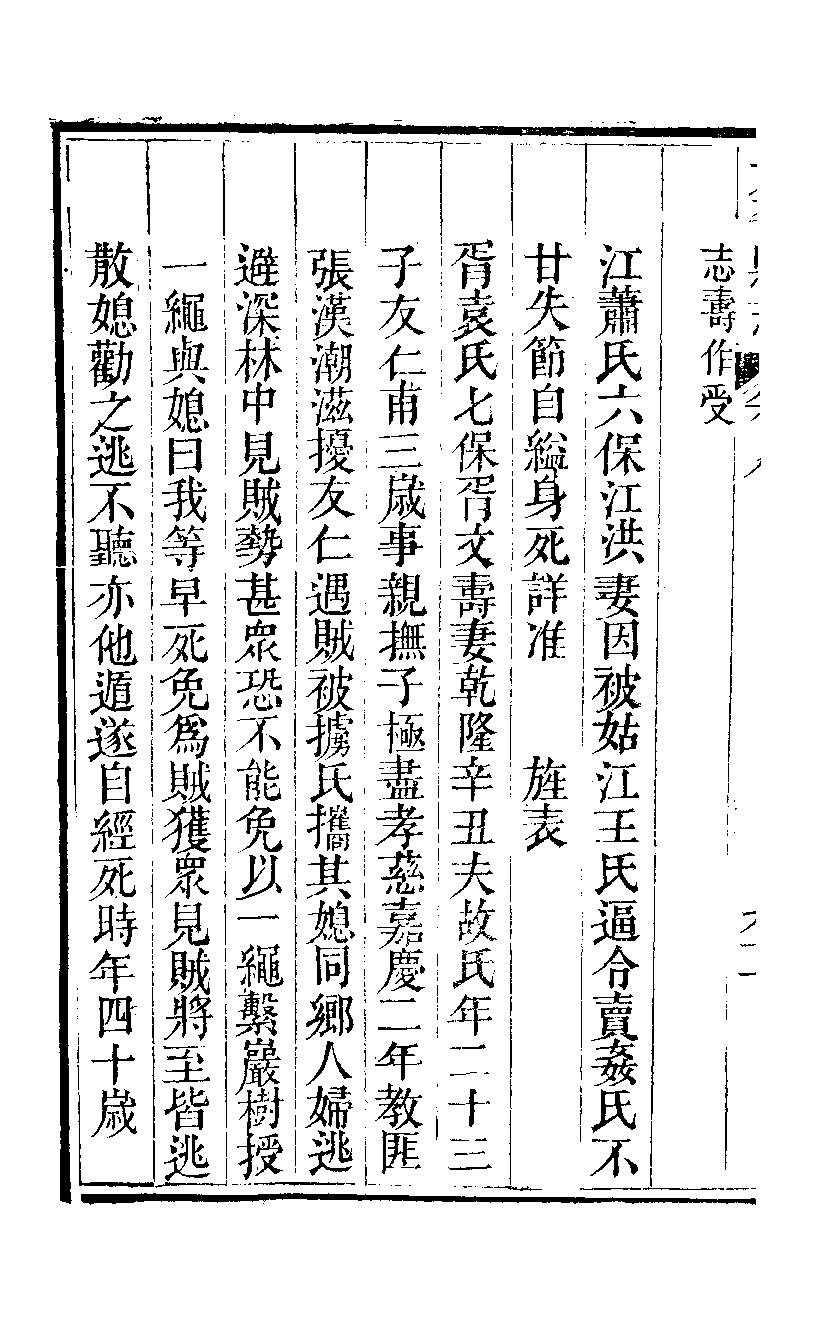 志壽作受
江蕭氏六保江洪妻因被姑江王氏逼令賣姦氏不
甘失節自縊身死詳准　　旌表
胥袁氏七保胥文壽妻乾隆辛丑夫故氏年二十三
子友仁甫三歲事親撫子極盡孝慈嘉慶二年教匪
張漢潮滋擾友仁遇賊被擄氏攜其媳同鄉人婦逃
避深林中見賊勢甚眾恐不能免以一繩繫巖樹授
一繩與媳曰我等早死免為賊獲眾見賊將至皆逃
散媳勸之逃不聽亦他遁遂自經死時年四十歲